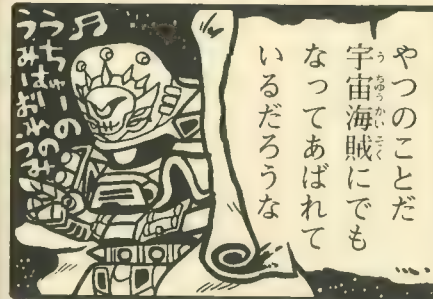 やつのことだ
宇宙海賊にでも
うちゅうかいぞく
なってあばれて
いるだろうな
……
♪
うちゅーの
うみはおれのうみ